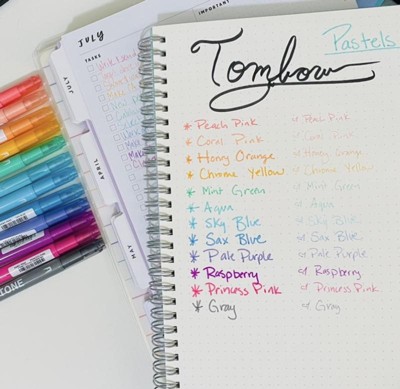 Pastels
Tombow
Peach Pink Peach Pink
Coral Pink Coral Pink
Hony Orange Hony Orange
Chrome Yellow Chrome Yellow
Mint Green Mint Green
Aqua Aqua
Sky Blue Sky Blue
Sax Blue Sax Blue
Pale Purple Pale Purple
Raspberry Raspberry
Princess Pink Princess Pink
Gray Gray
JULY
IMPORTANT
TASKS
JULY
APRIL
MAY